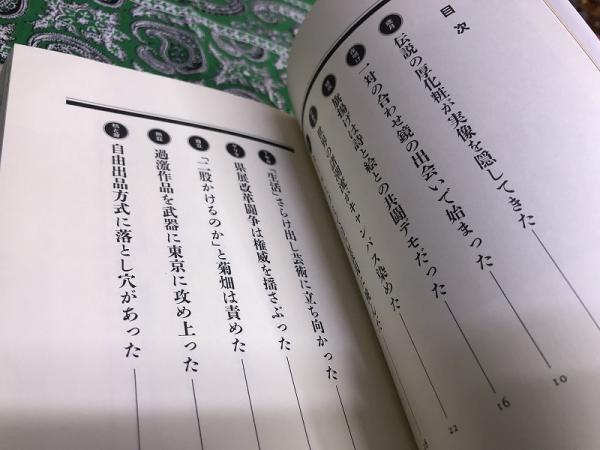 目次
伝説の厚化粧が実像を隠してきた
10
一対の合わせ鏡の出会いで始まった
16
旗揚げは詩と絵との共闘デモだった
22
キャンバス染めた
「生活」さらけ出し芸術に立ち向かった
県展改革闘争は権威を揺さぶった
「二股かけるのか」と菊畑は責めた
過激作品を武器に東京に攻め上った
自由出品方式に落とし穴があった